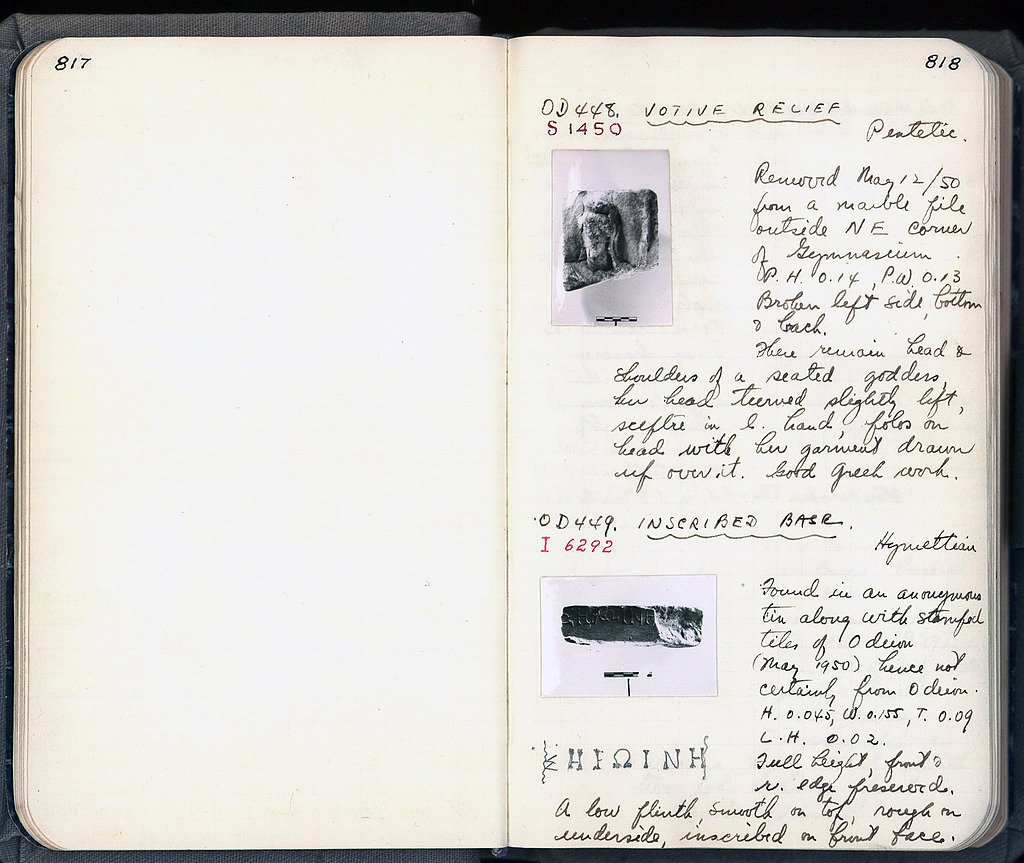 817
818
OD 448. VOTIVE RELIEF
S 1450
Pentelic.
Removed May 12/50
from a marble pile
outside NE corner
of Gymnasium.
P.H. 0.14, P.W. 0.13
Broken left side, bottom
& back.
There remain head &
shoulders of a seated goddess,
her head turned slightly left,
sceptre in l. hand, polos on
head with her garment drawn
up over it. Good Greek work.
OD 449. INSCRIBED BASE.
I 6292
Hymettian
Found in an anonymous
tin along with stamped
tiles of Odeion
(May 1950) hence not
certainly from Odeion.
H. 0.045, W. 0.155, T. 0.09
L.H. 0.02.
ΗΙΩΙΝΗ
Full height, front &
r. edge preserved.
A low plinth, smooth on top, rough on
underside, inscribed on front face.